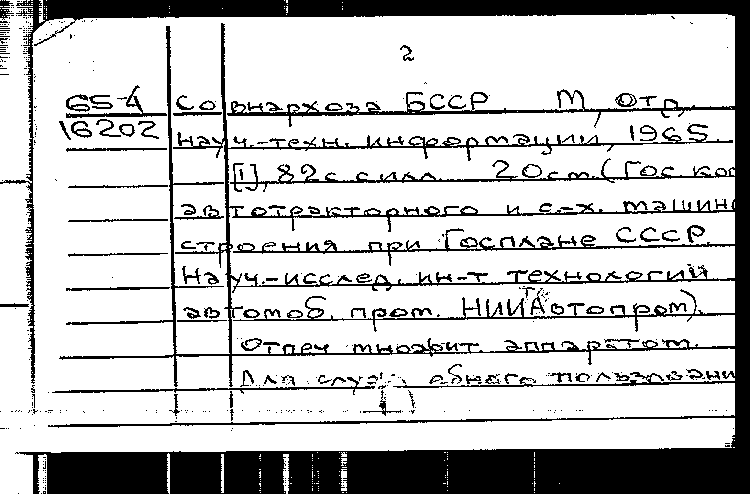 2
65-4 Совнархоза БССР. М, Отд.
16202 науч.-техн. информации, 1965.
[1], 82 с с илл. 20 см. (Гос. ком
автотракторного и с.-х. машино
строения при Госплане СССР.
Науч.-исслед. ин-т технологии
автомоб. пром. НИИТАвтопром).
Отпеч множит. аппаратом.
Для служебного пользовани